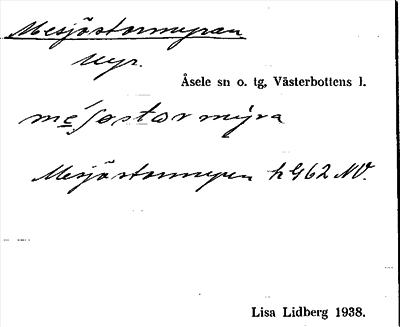 Mesjöstormyran
Myr.
Åsele sn o. tg, Västerbottens l.
Mesjöstormyren h G62 NV.
Lisa Lidberg 1938.